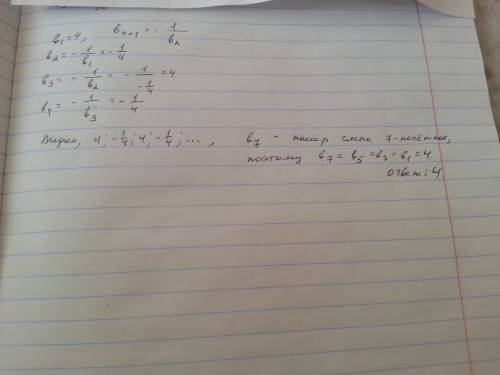 b₁=4, bₙ₊₁ = - 1/bₙ
b₂ = - 1/b₁ = - 1/4
b₃ = - 1/b₂ = - 1/(-1/4) = 4
b₄ = - 1/b₃ = - 1/4
Видим, 4; -1/4; 4; -1/4; ..., b₇ - номер члена 7-нечётное,
поэтому b₇ = b₅ = b₃ = b₁ = 4
Ответ: 4